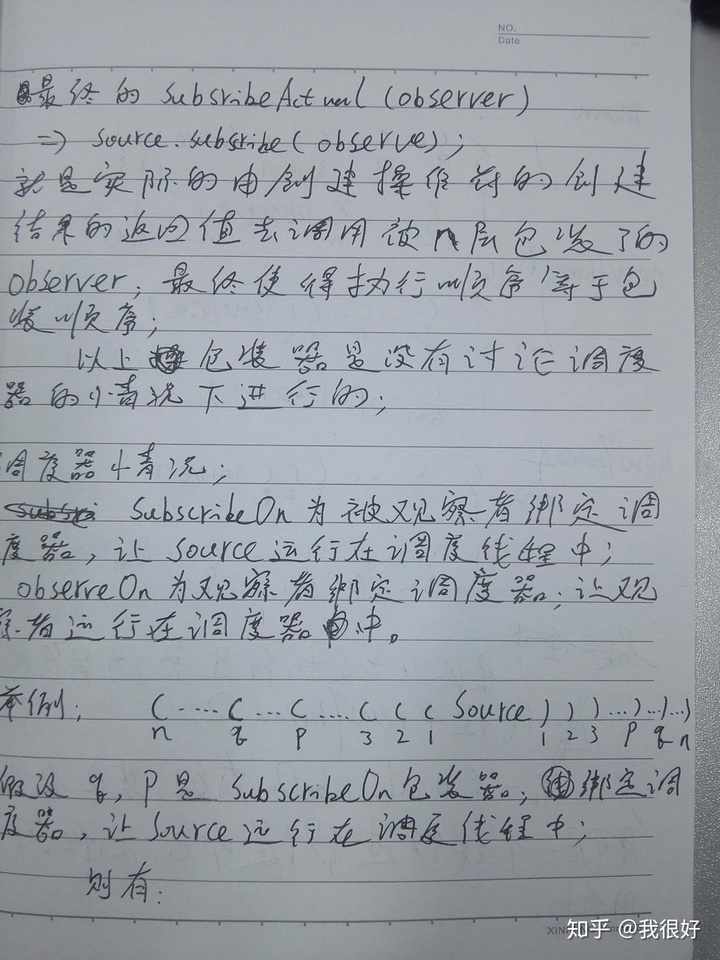 NO.
Date
最终的 subsribeActual (observer)
=> source.subscribe(observe);
就是实际的由创建操作符的创建
结果的返回值去调用被n层包装了的
observer, 最终使得执行顺序等于包
装顺序;
以上包装器是没有讨论调度
器的情况下进行的;
调度器情况;
SubscribeOn为被观察者绑定调
度器,让Source运行在调度线程中;
observeOn为观察者绑定调度器;让观
察者运行在调度器中。
举例: (····(···(····( ( ( Source ) ) )···)··)··)
n q p 3 2 1 1 2 3 p q n
假设 q, p是 SubscribeOn包装器; 绑定调
度器,让Source运行在调度线程中;
则有:
知乎 @我很好